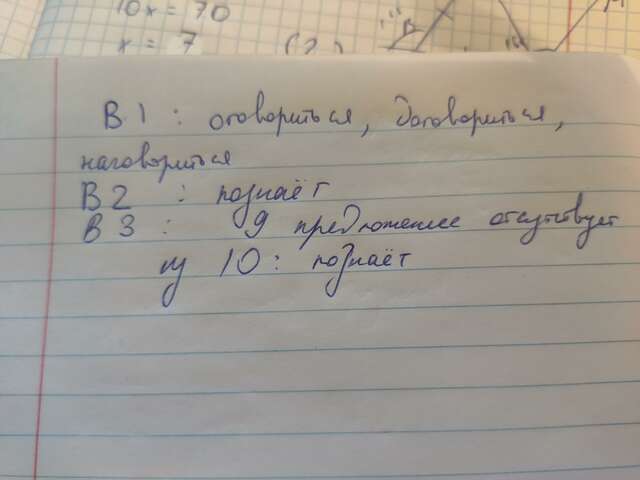 10x = 70
x = 7
В 1 : оговориться, договориться,
наговориться
В 2 : познаёт
В 3 : 9 предложение отсутствует
из 10 : познаёт